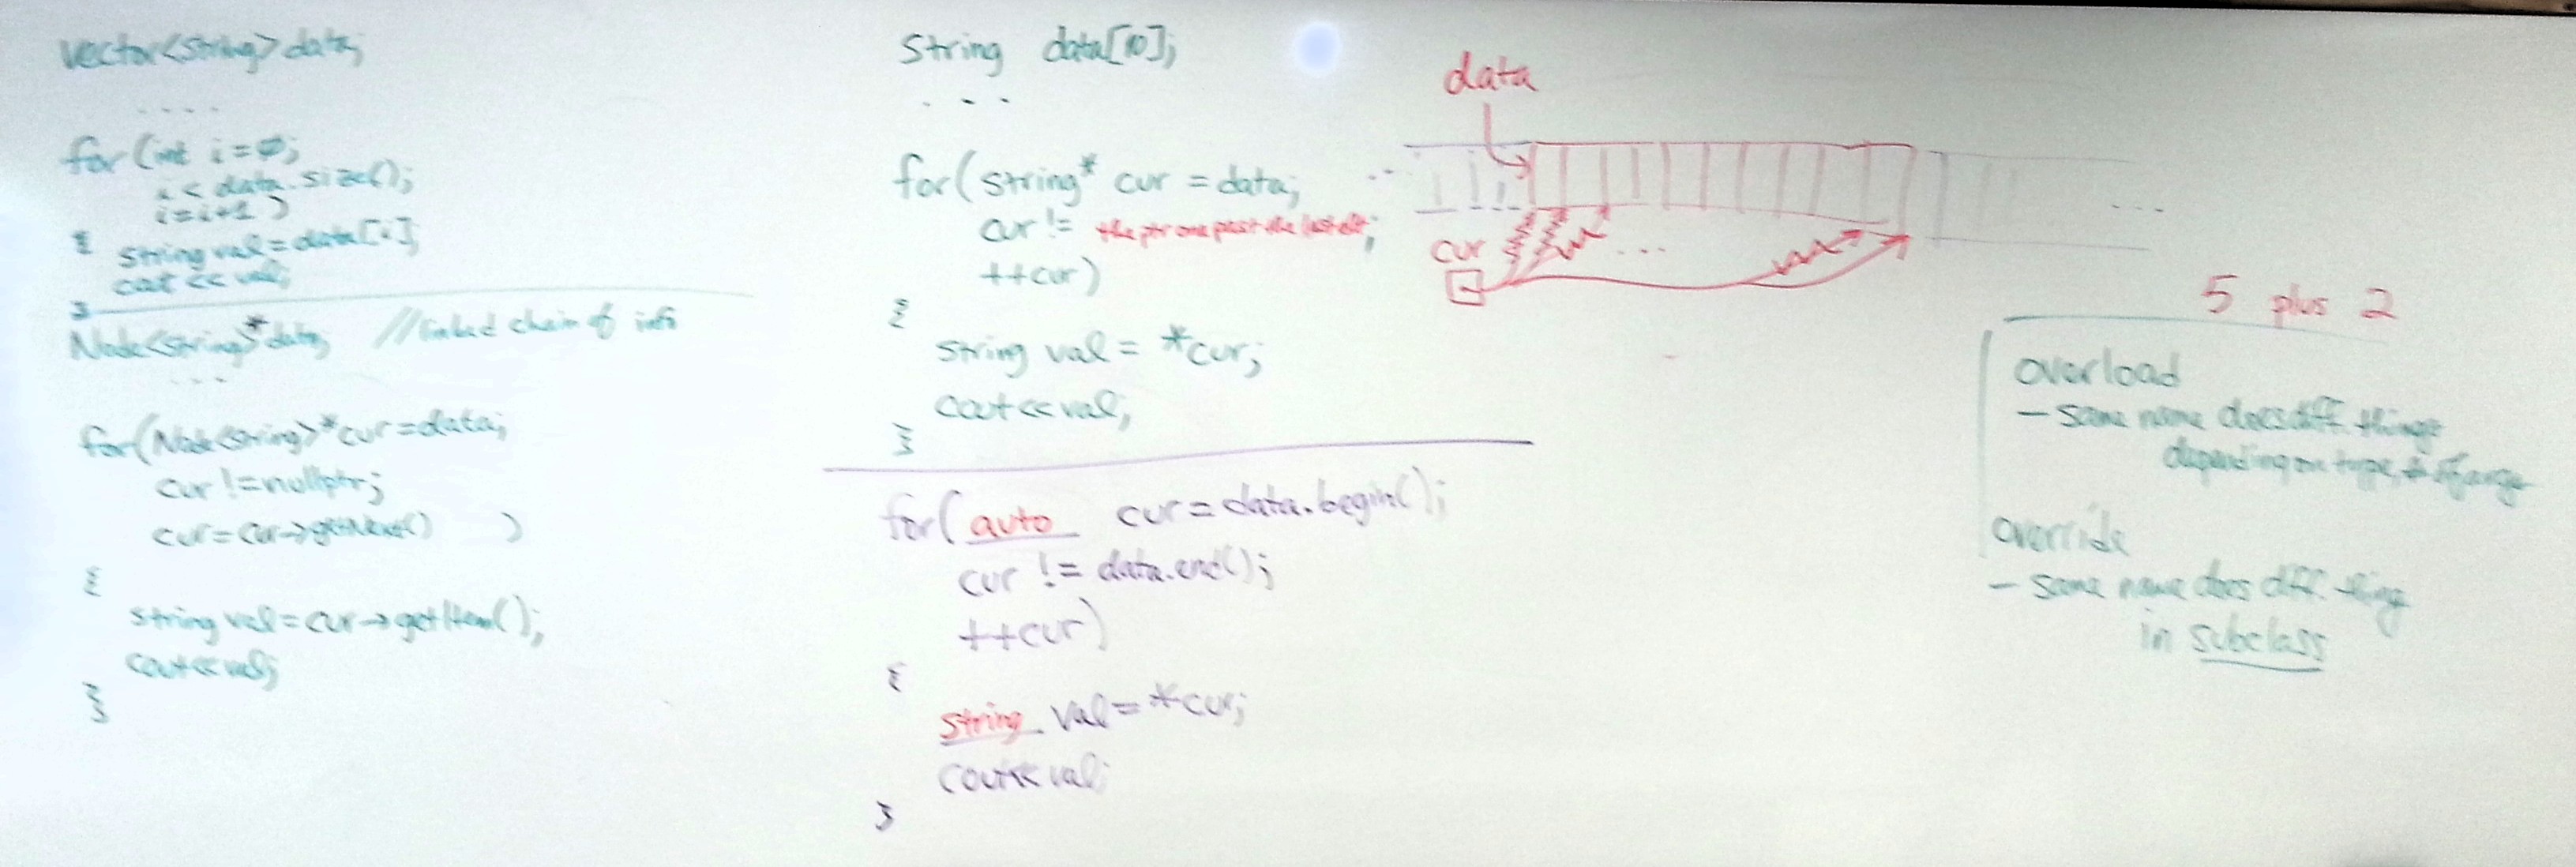 vector<string> data;
....
for(int i=0;
i< data.size();
i=i+1)
{ string val=data[i];
cout << val;
}
Node<string>* data; //linked chain of info
...
for(Node<string>* cur=data;
cur !=nullptr;
cur=cur->getNext() )
{
string val=cur->getItem();
cout<<val;
}
String data[10];
...
for(string* cur =data;
cur != the ptr one past the last elt;
++cur)
{
string val= *cur;
cout<<val;
}
for(auto cur=data.begin();
cur != data.end();
++cur)
{
string val=*cur;
cout<<val;
}
data
...
...
cur
...
5 plus 2
overload
- same name does diff. things
depending on type, # of args
override
- same name does diff. thing
in subclass